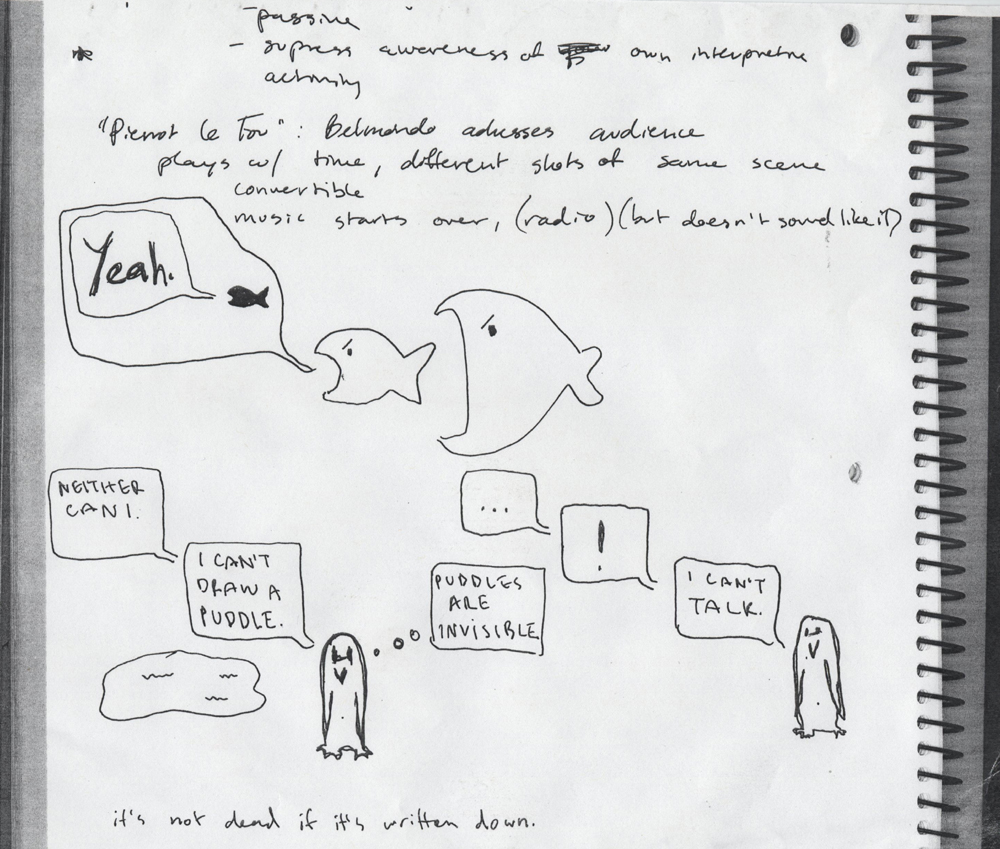 -passive
- supress awareness of own interpretive
activity
"Pierrot le Fou": Belmondo adresses audience
plays w/ time, different shots of same scene
convertible
music starts over, (radio) (but doesn't sound like it)
Yeah.
NEITHER
CAN I.
I CAN'T
DRAW A
PUDDLE.
PUDDLES
ARE
INVISIBLE
...
!
I CAN'T
TALK.
it's not dead if it's written down.